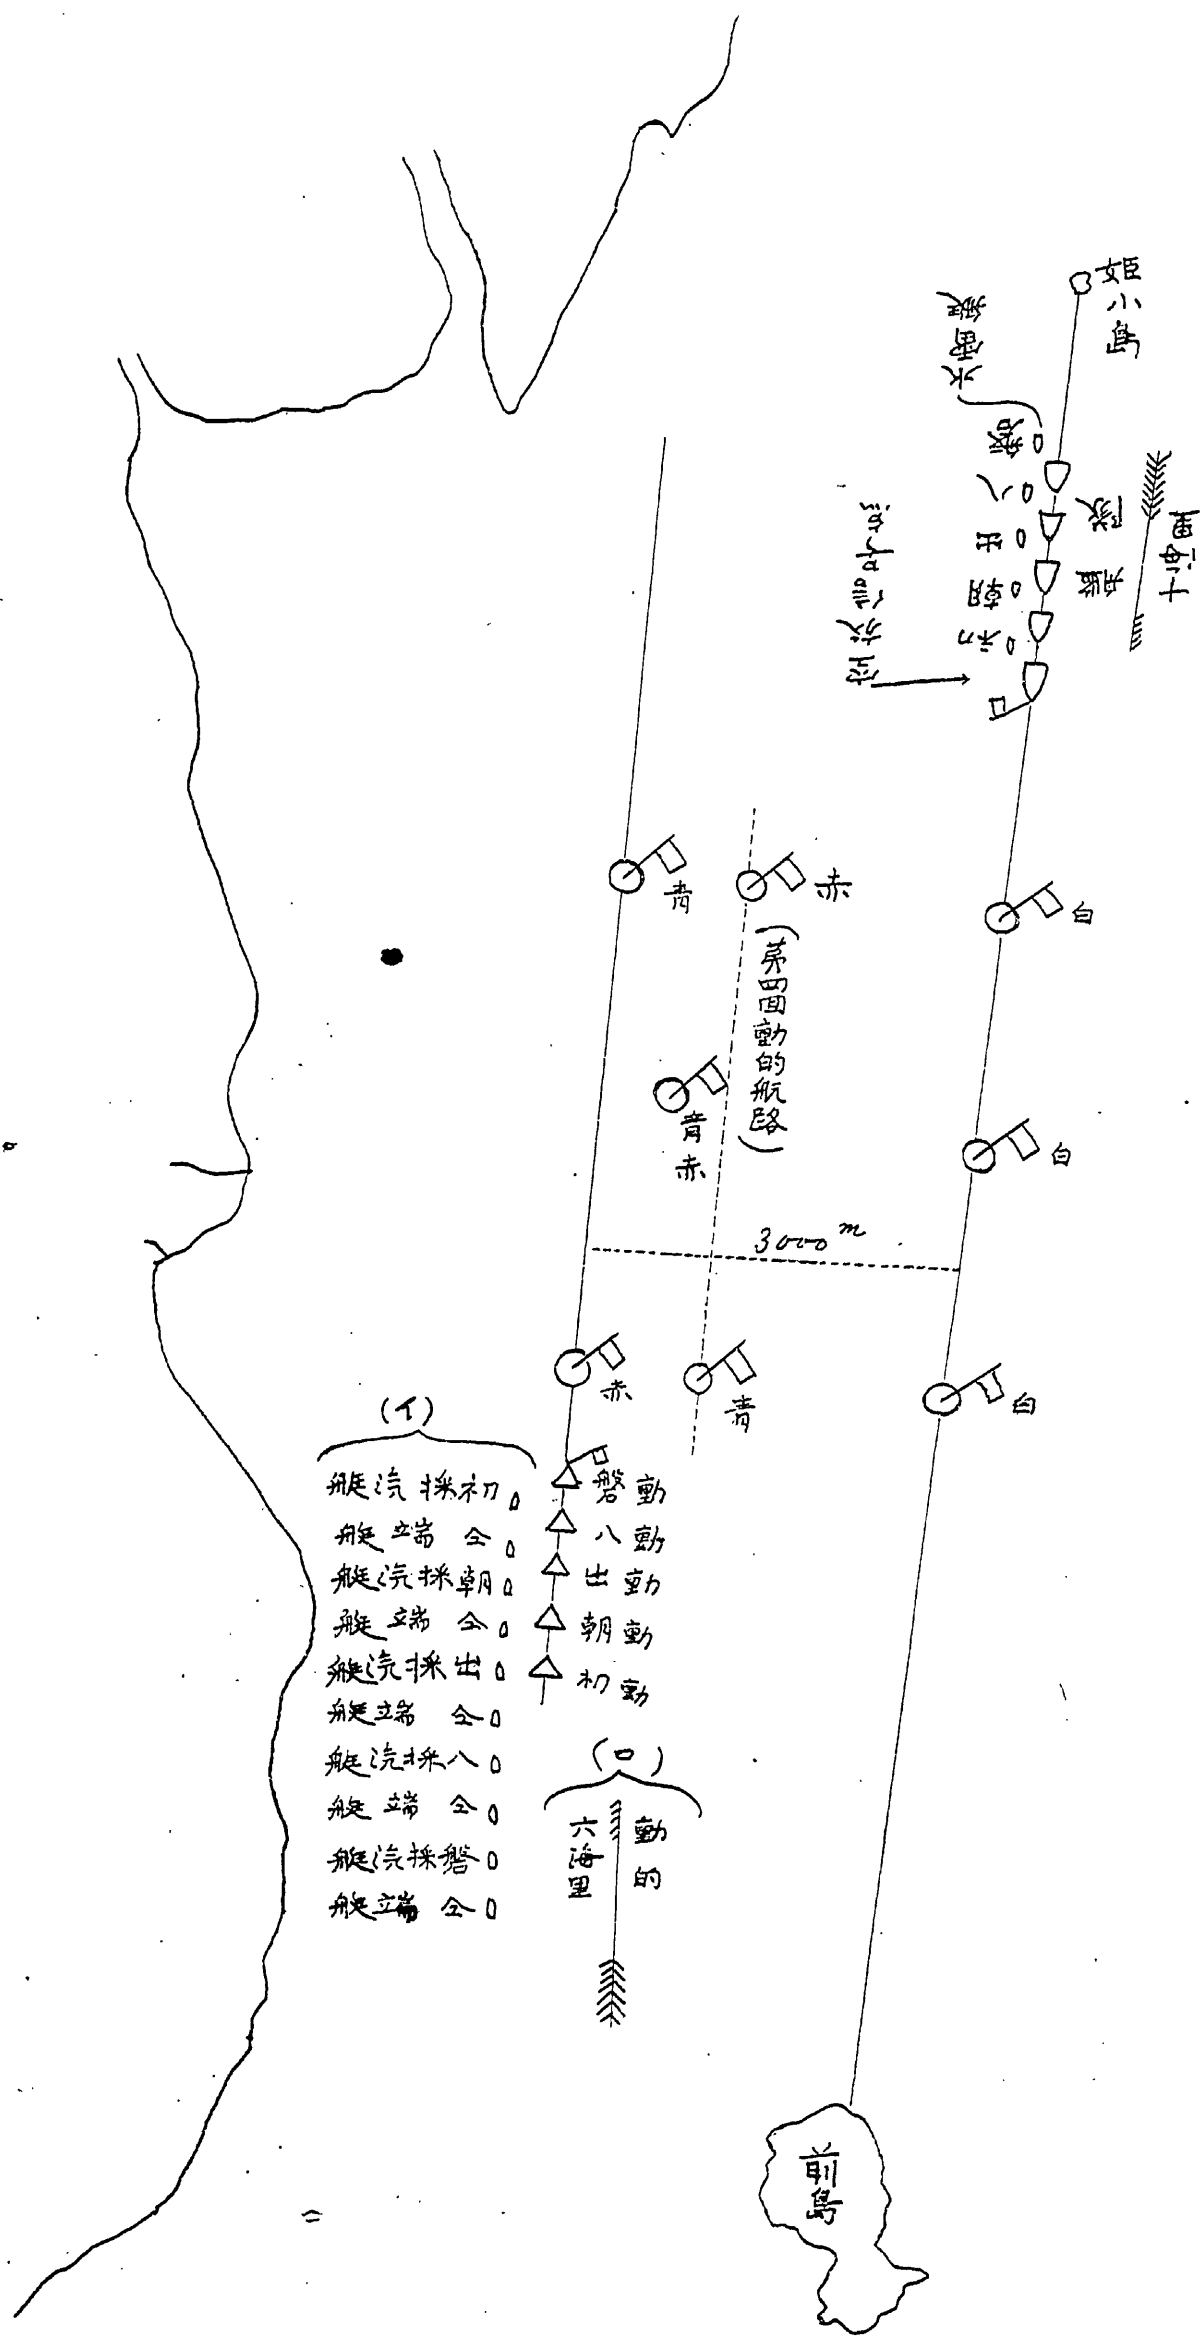 姫小島
水雷艇
磐
八
出
朝
初
艦隊
十海里
空放信号点
青
赤
白
(第四回動的航路)
青赤
白
3000m
赤
青
白
(イ)
艇汽採初
艇端仝
艇汽採朝
艇端仝
艇汽採出
艇端仝
艇汽採八
艇端仝
艇汽採磐
艇端仝
磐動
八動
出動
朝動
初動
(ロ)
動的
六海里
前島